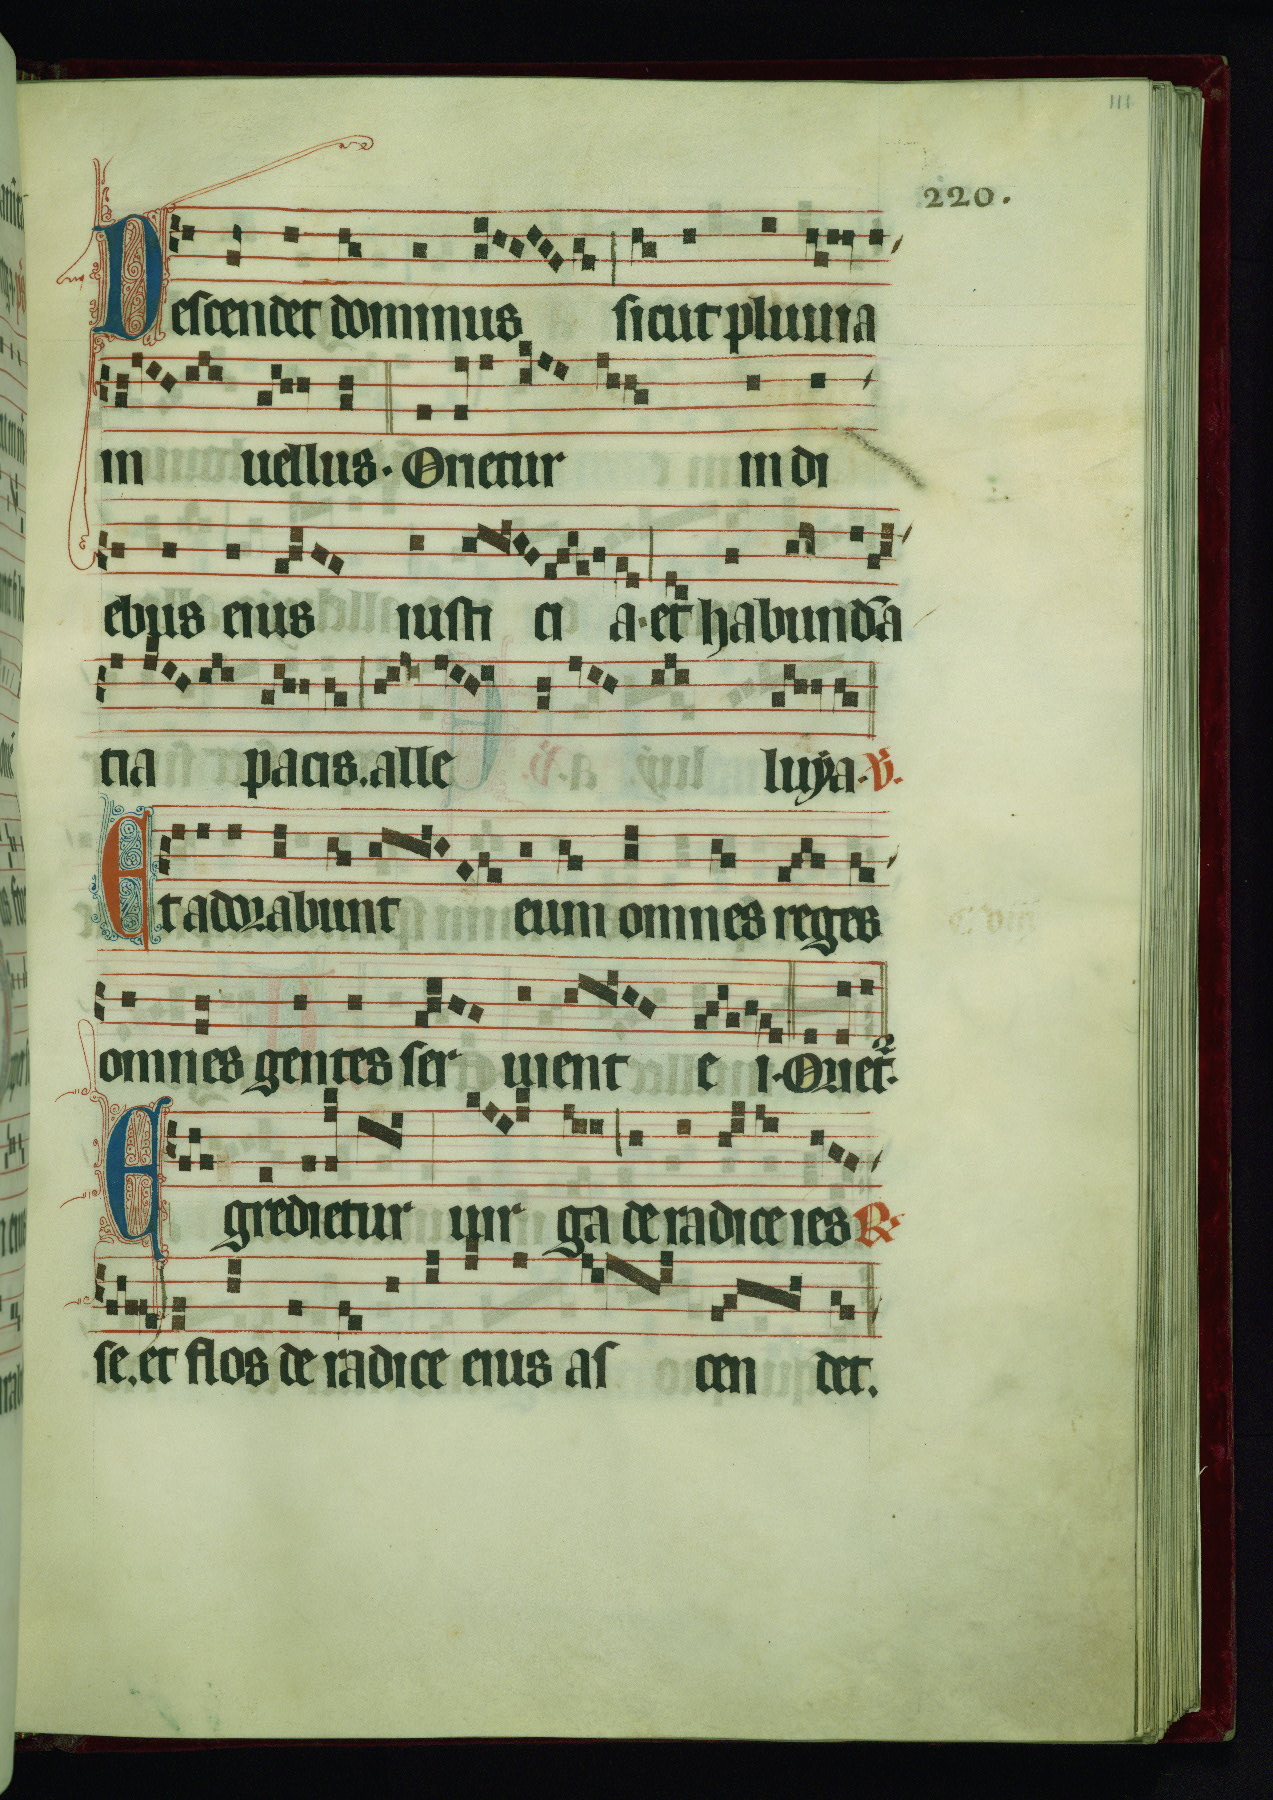 111
220.
Descendet dominus sicut pluuia
in uellus. Orietur in di
ebus eius iusti ci a. et habunda
tia pacis. alle luẏa. V.
Et adorabunt eum omnes reges
omnes gentes ser uient e i. Oriet.
Egredietur uir ga de radice ies R.
se. et flos de radice eius as cen det.